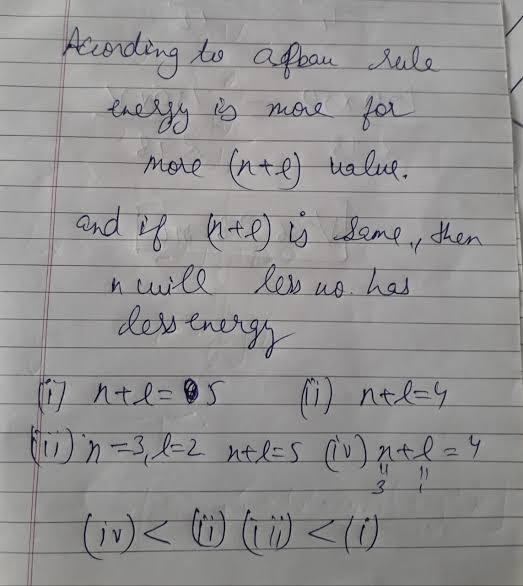 According to afbau rule
energy is more for
more (n+l) value.
and if (n+l) is same, then
n will less no. has
less energy
(i) n+l= 5 (ii) n+l=4
(iii) n=3, l=2 n+l=5 (iv) n+l=4
3 1
(iv) < (ii) (iii) < (i)